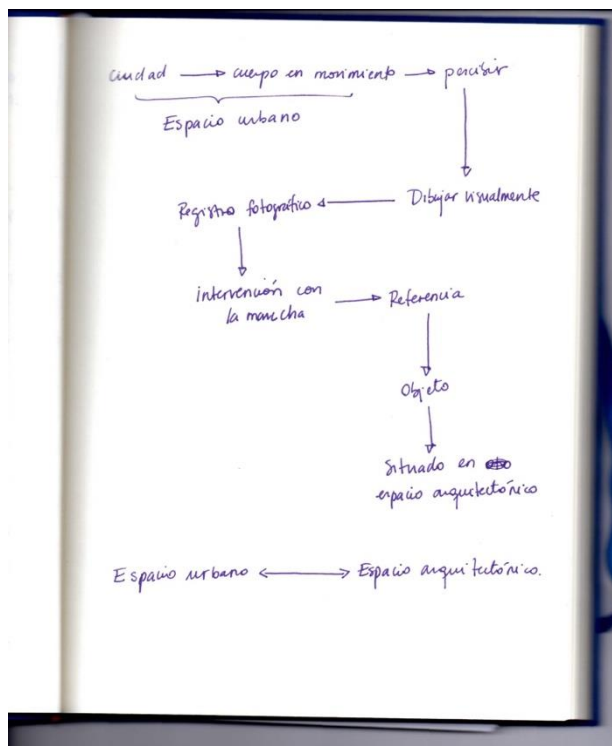 ciudad → cuerpo en movimiento → percibir
Espacio urbano
Registro fotográfico ← Dibujar visualmente
intervención con
la mancha → Referencia
Objeto
Situado en
espacio arquitectónico
Espacio urbano ↔ Espacio arquitectónico.